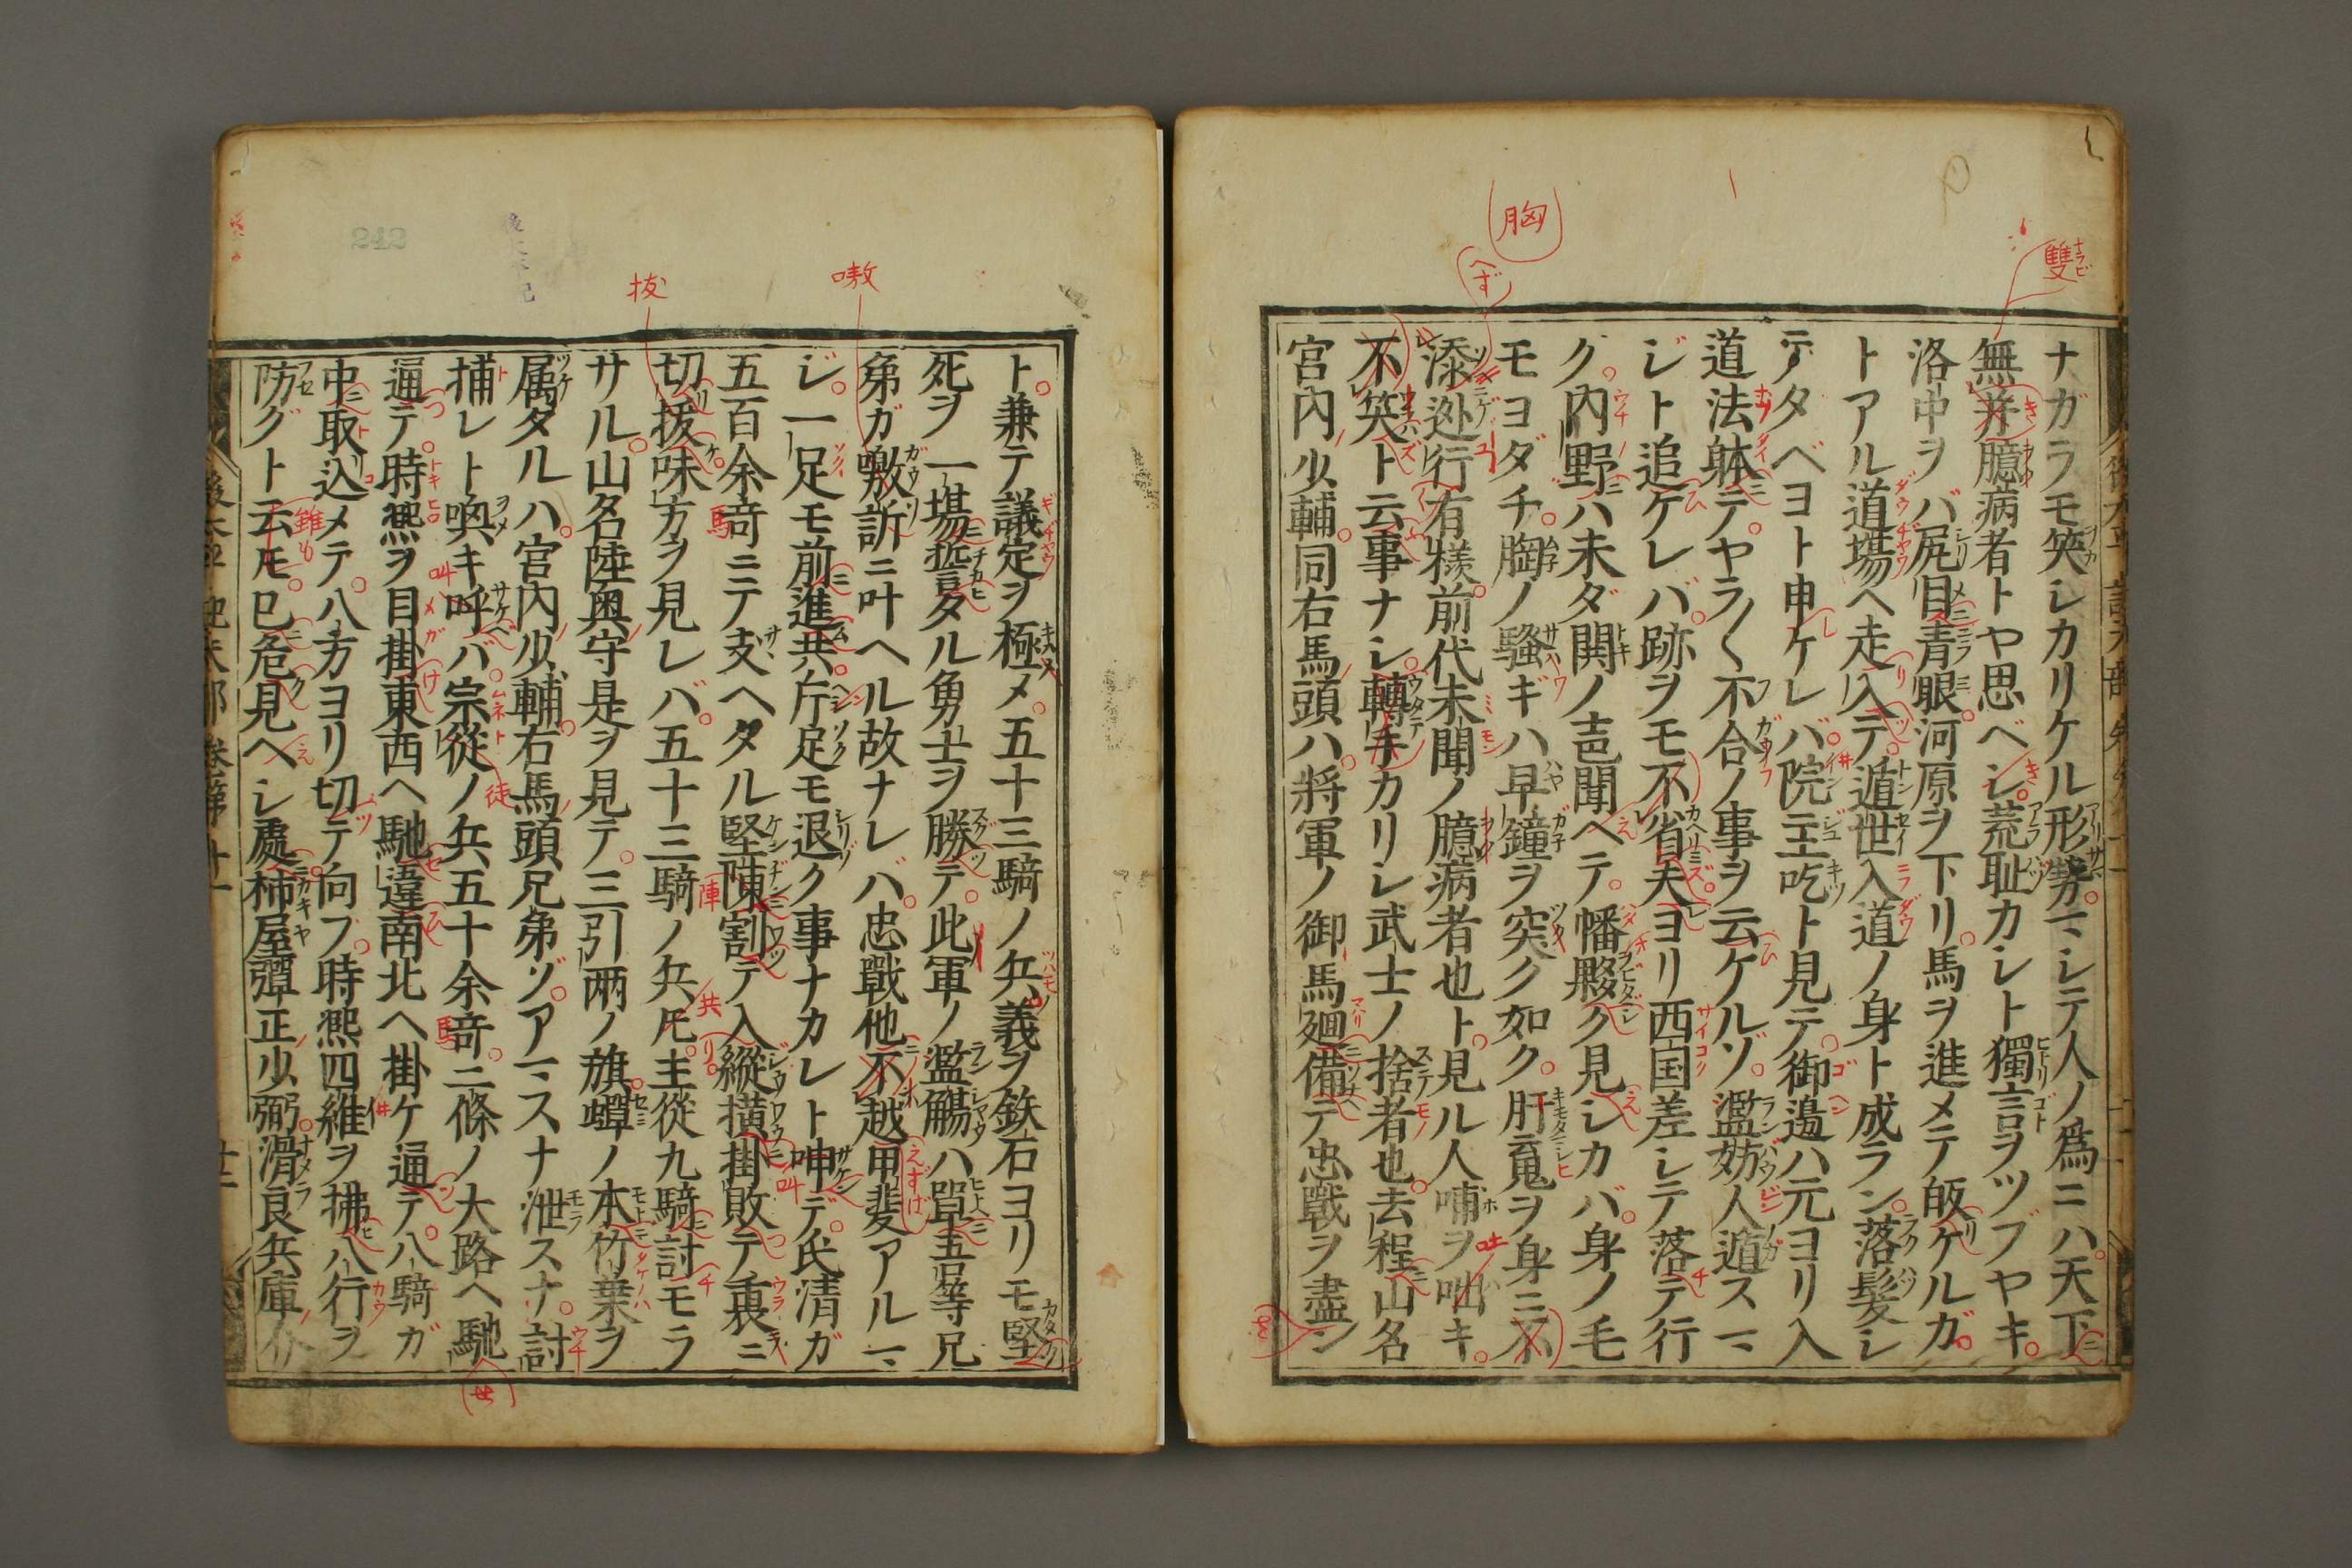 ナガラモ笑シカリケル形勢ニシテ人ノ為ニハ天下
無并臆病者トヤ思ベシ荒耻カシト獨言ヲツブヤキ
洛中ヲバ尻目青眼河原ヲ下リ馬ヲ進メテ皈ケルガ
トアル道場ヘ走入テ遁世入道ノ身ト成ラン落髪シ
テタベヨト申ケレバ院主吃ト見テ御邉ハ元ヨリ入
道法躰テヤラン不合ノ事ヲ云ケルゾ濫妨人遁スマ
ジト追ケレバ跡ヲモ不省天ヨリ西国差シテ落テ行
ク内野ハ未ダ関ノ声聞ヘテ幡夥ク見シカバ身ノ毛
モヨダチ胸ノ騒ギハ早鐘ヲ突ク如ク肝䰟ヲ身ニ不
添迯行有様前代未聞ノ臆病者也ト見ル人哺ヲ咄キ
不笑ト云事ナシ轉手カリシ武士ノ捨者也去程山名
宮内少輔同右馬頭ハ將軍ノ御馬廻備テ忠戰ヲ盡ン
ト兼テ議定ヲ極メ五十三騎ノ兵義ヲ鉄石ヨリモ堅
死ヲ一場誓タル勇士ヲ勝テ此軍ノ濫觴ハ單吾等兄
弟ガ嗷訴ニ叶ヘル故ナレバ忠戰他不越甲斐アルマ
ジ一足モ前進共片足モ退ク事ナカレト呻デ氏清ガ
五百余竒ニテ支ヘタル堅陳割テ入縦横掛敗テ重裏ニ
切抜味方ヲ見レバ五十三騎ノ兵圧主從九騎討モラ
サル山名陸奥守是ヲ見テ三引両ノ旗蟬ノ本竹葉ヲ
属タルハ宮内少輔右馬頭兄弟ゾアマスナ泄スナ討
捕レト喚キ呼バ宗從ノ兵五十余竒二條ノ大路ヘ馳
逼テ時熈ヲ目掛東西ヘ馳違南北ヘ掛ケ逼テ八騎ガ
中取込メテ八方ヨリ切テ向ブ時熈四維ヲ拂八行ヲ
防グト云氏已危見ヘシ處柿屋彈正少弼滑良兵庫介
雙
胸
嗷
抜
242